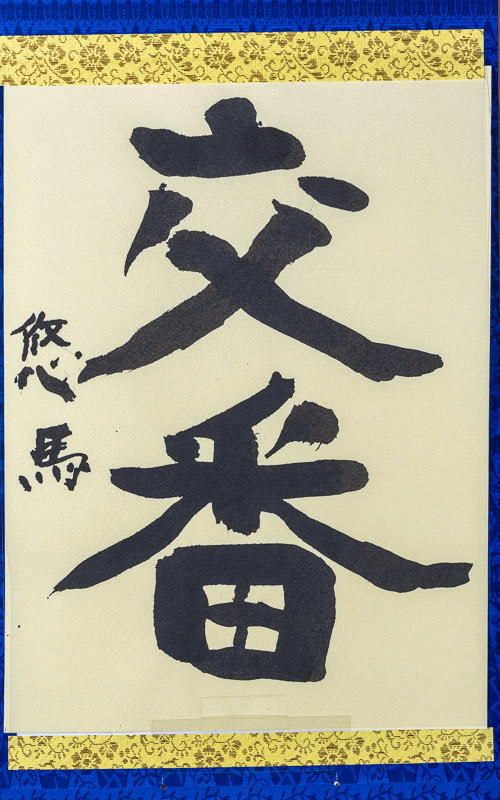 交番
悠馬